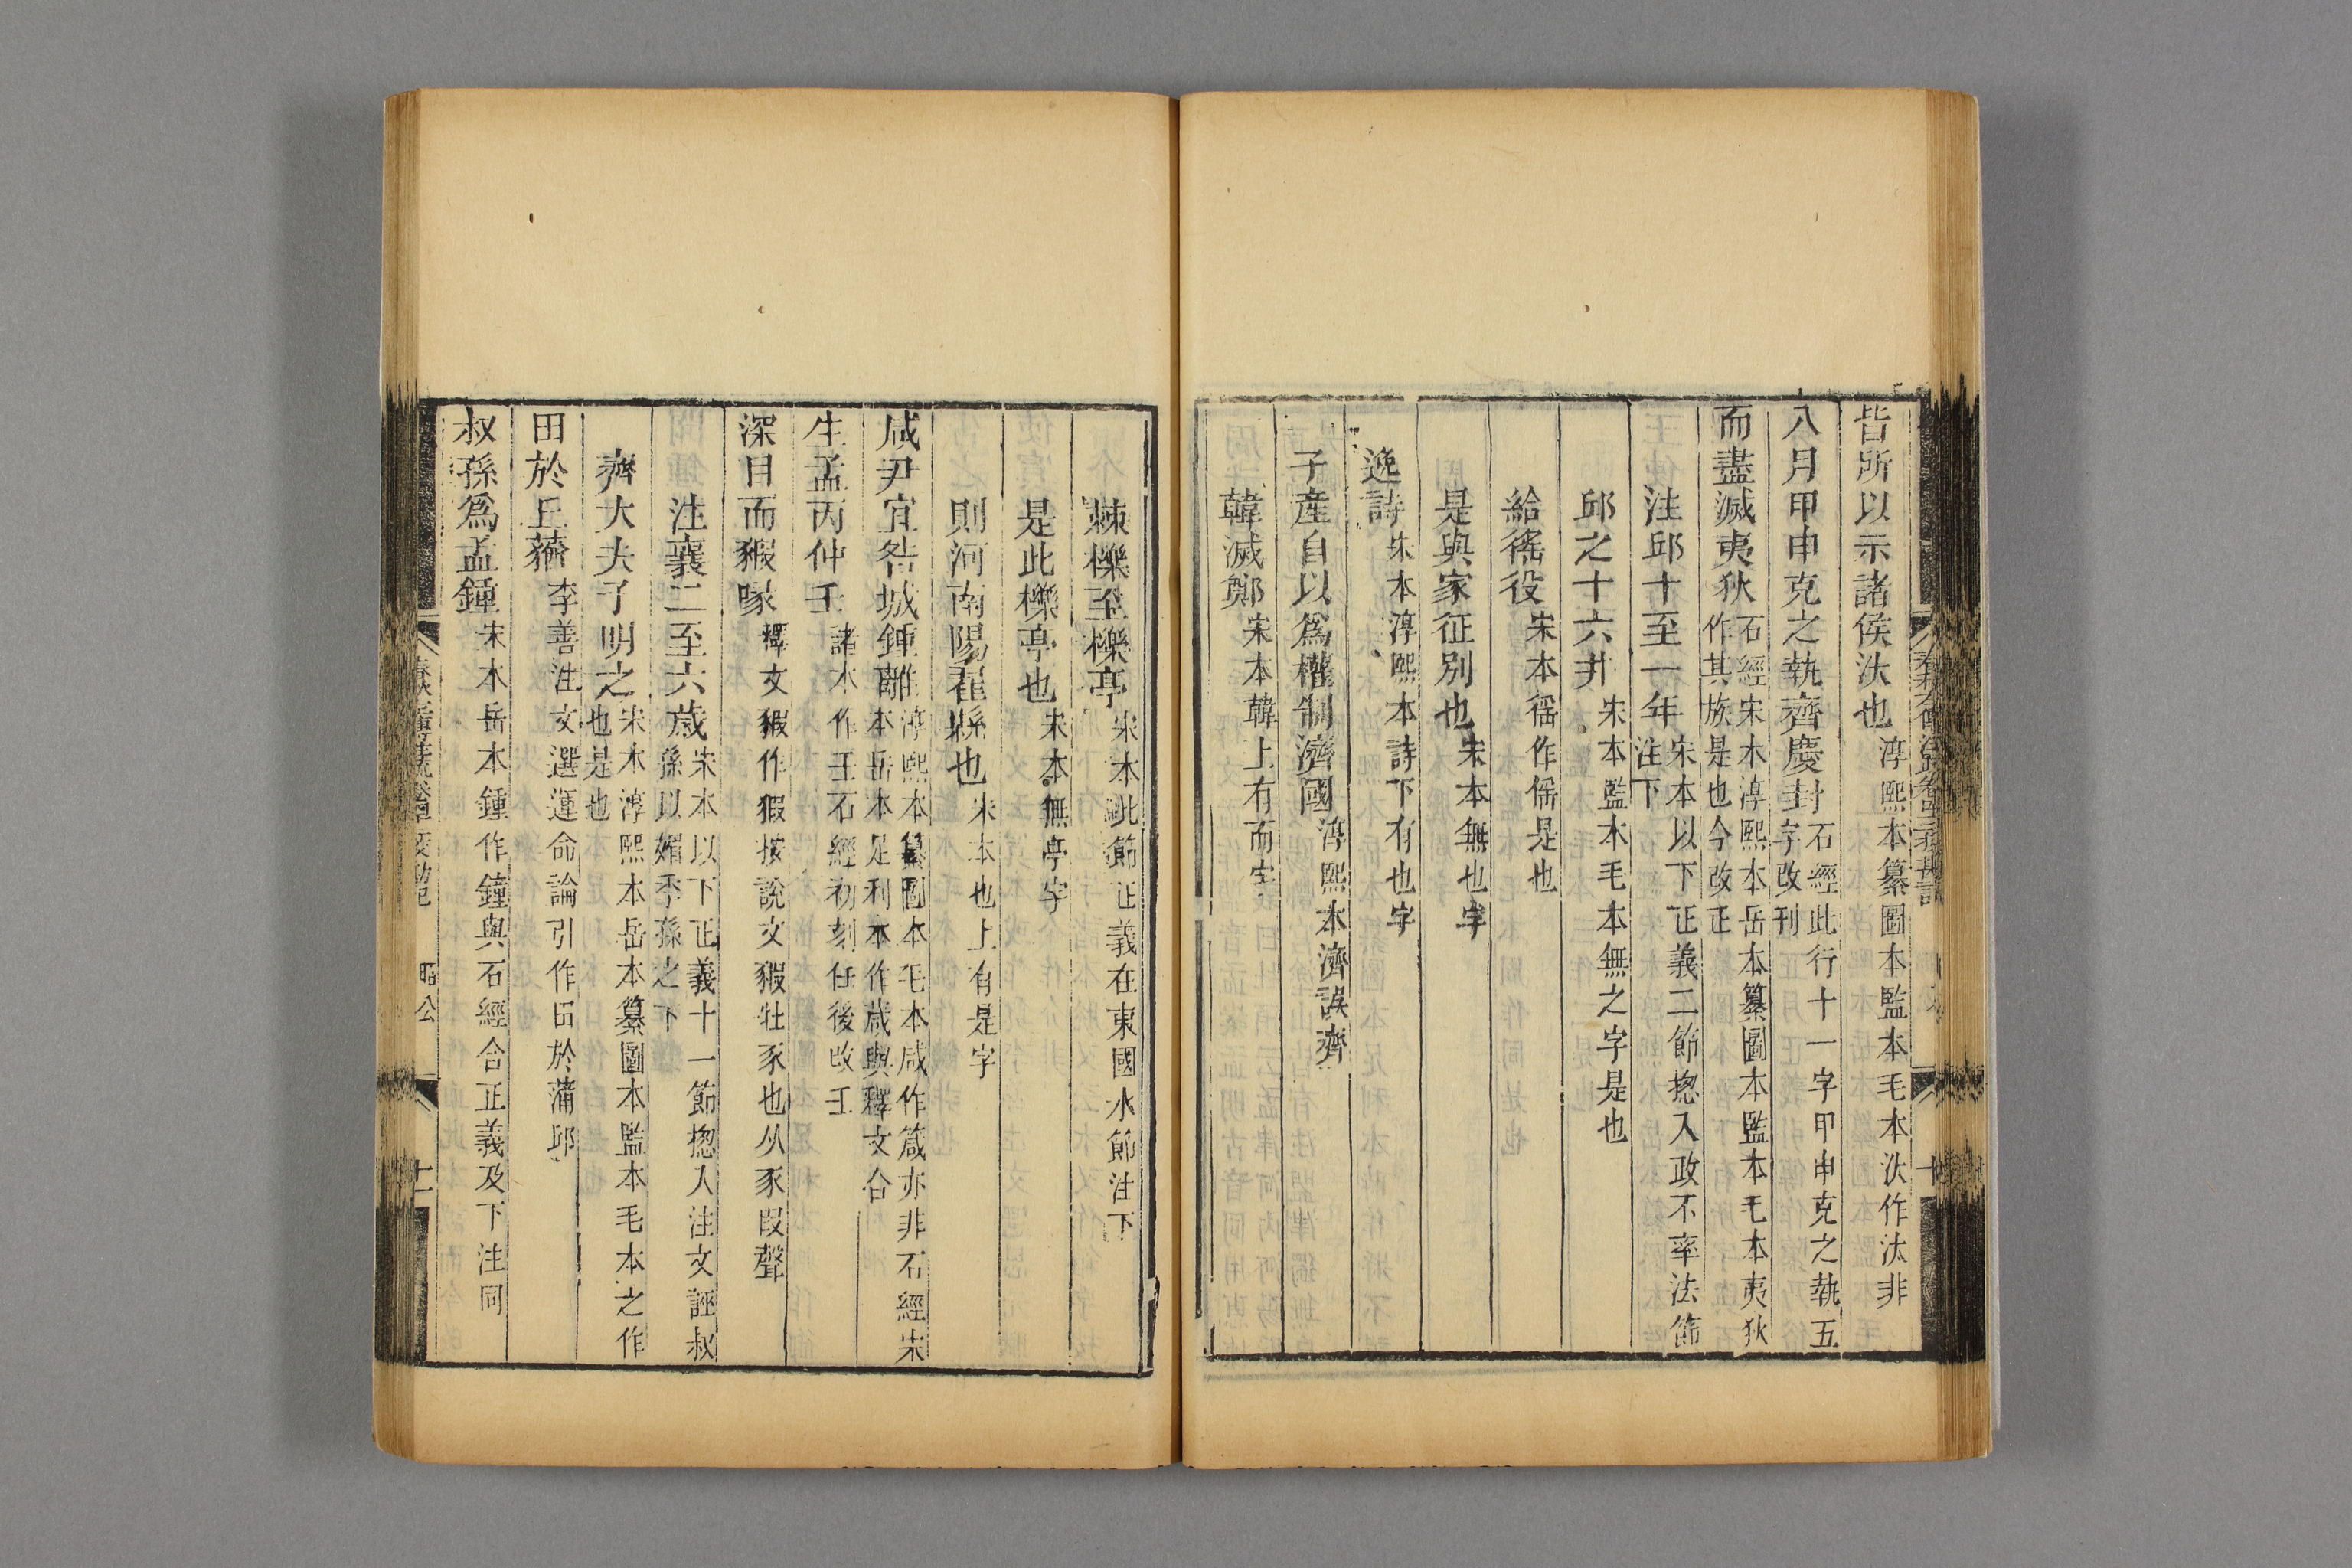 皆所以示諸侯汏也淳熙本纂圖本監本毛本汏作汰非
八月甲申克之執齊慶封石經此行十一字甲申克之執五字改刊
而盡滅夷狄石經宋本淳熙本岳本纂圖本監本毛本夷狄作其族是也今改正
注邱十至一年宋本以下正義二節揔入政不率法節注下
邱之十六井宋本監本毛本無之字是也
給徭役宋本徭作傜是也
是與家征別也宋本無也字
逸詩宋本淳熙本詩下有也字
子產自以爲權制濟國淳熙本濟誤齊
韓滅鄭宋本韓上有而字
棘櫟至櫟亭宋本此節正義在東國水節注下
是此櫟亭也宋本無亭字
則河南陽翟縣也宋本也上有是字
咸尹宜咎城鍾離淳熙本纂圖本毛本咸作箴亦非石經宋本岳本足利本作葴與釋文合
生孟丙仲壬諸本作壬石經初刻任後改壬
深目而豭喙釋文豭作猳按說文豭牡豕也从豕叚聲
注襄二至六歲宋本以下正義十一節揔入注文誣叔孫以媚季孫之下
齊大夫子明之宋本淳熙本岳本纂圖本監本毛本之作也是也
田於丘蕕李善注文選運命論引作田於蒲邱
叔孫爲孟鍾宋本岳本鍾作鐘與石經合正義及下注同
昭公
十一